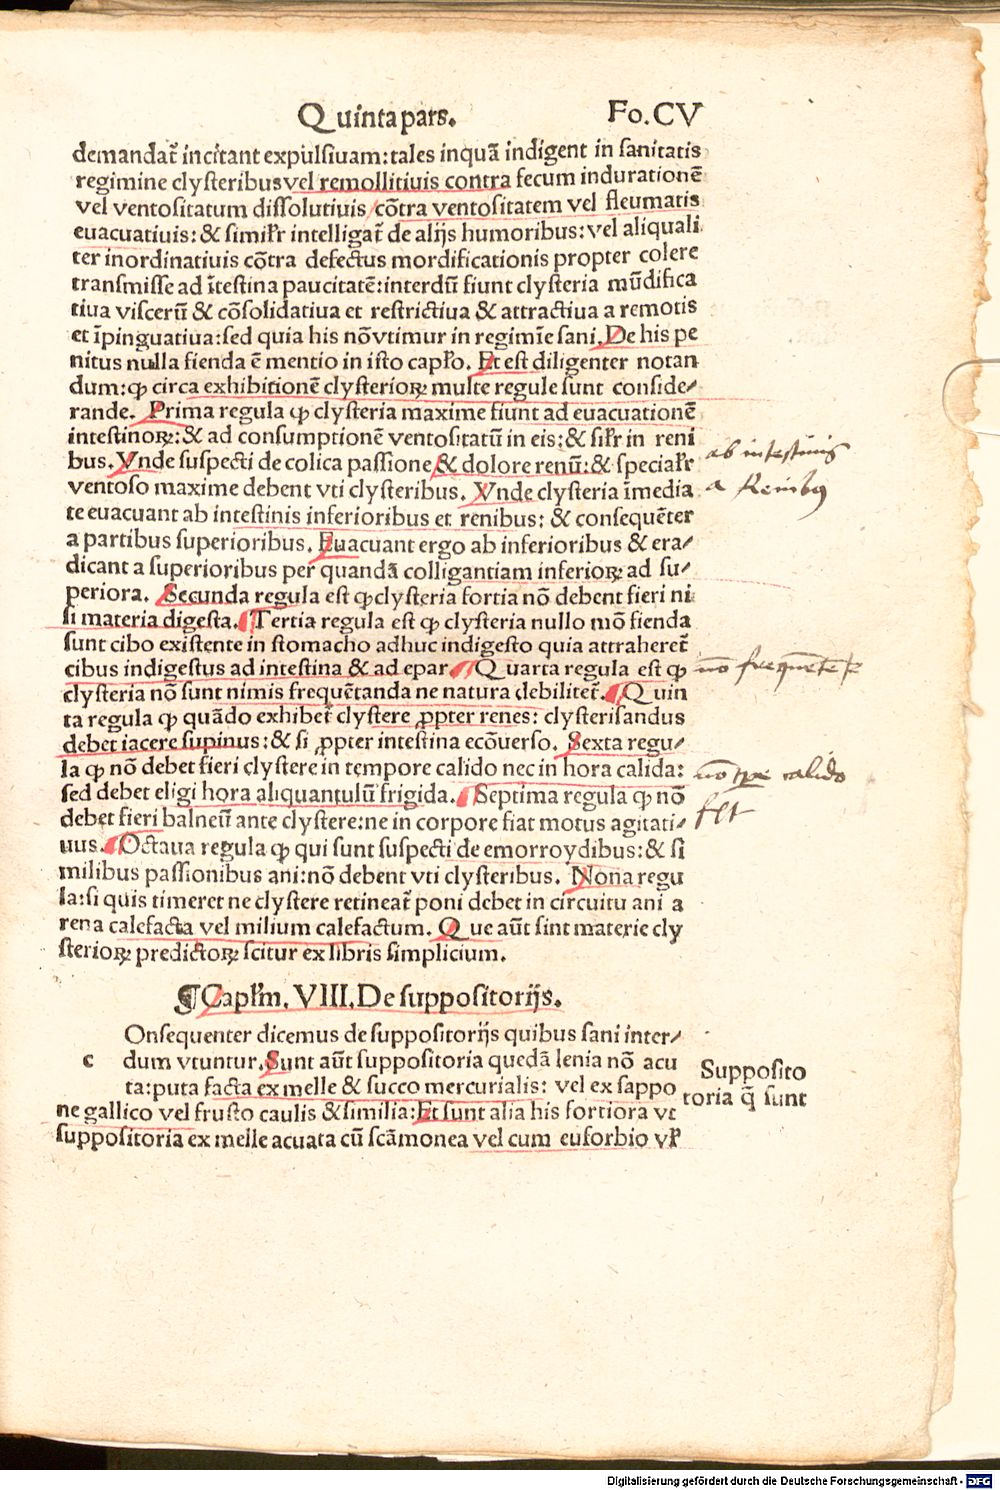 Quinta pars. Fo.CV
demandat᷑ incitant expulsiuam:tales inquã indigent in sanitatis
regimine clysteribus vel remollitiuis contra fecum indurationẽ
vel ventositatum dissolutiuis/cõtra ventositatem vel fleumatis
euacuatiuis:& simiłr intelligat᷑ de alijs humoribus:vel aliquali
ter inordinatiuis cõtra defectus mordificationis propter colere
transmisse ad ĩtestina paucitatẽ:interdũ fiunt clysteria mũdifica
tiua viscerũ & cõsolidatiua et restrictiua & attractiua a remotis
et ĩpinguatiua:sed quia his nõ vtimur in regimĩe sani. De his pe
nitus nulla fienda ẽ mentio in isto capło. Et est diligenter notan
dum:ꝙ circa exhibitionẽ clysterioꝝ multe regule sunt conside/
rande. Prima regula ꝙ clysteria maxime fiunt ad euacuationẽ
intestinoꝝ:& ad consumptionẽ ventositatũ in eis:& siłr in reni
bus. Vnde suspecti de colica passione & dolore renũ:& speciałr
ventoso maxime debent vti clysteribus. Vnde clysteria ĩmedia
te euacuant ab intestinis inferioribus et renibus: & consequẽter
a partibus superioribus. Euacuant ergo ab inferioribus & era/
dicant a superioribus per quandã colligantiam inferioꝝ ad su/
periora. Secunda regula est ꝙ clysteria fortia nõ debent fieri ni
si materia digesta. Tertia regula est ꝙ clysteria nullo mõ fienda
sunt cibo existente in stomacho adhuc indigesto quia attraheret᷑
cibus indigestus ad intestina & ad epar. Quarta regula est ꝙ
clysteria nõ sunt nimis frequẽtanda ne natura debilitet᷑. Quin
ta regula ꝙ quãdo exhibet᷑ clystere ꝓpter renes: clysterisandus
debet iacere supinus:& si ꝓpter intestina ecõuerso. Sexta regu/
la ꝙ nõ debet fieri clystere in tempore calido nec in hora calida:
sed debet eligi hora aliquantulũ frigida. Septima regula ꝙ nõ
debet fieri balneũ ante clystere:ne in corpore fiat motus agitati/
uus. Octaua regula ꝙ qui sunt suspecti de emorroydibus:& si
milibus passionibus ani:nõ debent vti clysteribus. Nona regu
la:si quis timeret ne clystere retineat᷑ poni debet in circuitu ani a
rena calefacta vel milium calefactum. Que aũt sint materie cly
sterioꝝ predictoꝝ scitur ex libris simplicium.
¶Capłm. VIII. De suppositorijs.
Onsequenter dicemus de suppositorijs quibus sani inter/
c dum vtuntur. Sunt aũt suppositoria quedã lenia nõ acu
ta:puta facta ex melle & succo mercurialis: vel ex sappo
ne gallico vel frusto caulis & similia:Et sunt alia his fortiora vt
suppositoria ex melle acuata cũ scãmonea vel cum euforbio vł
ab intestinis
a Renibus
nõ frequẽte
nõ calido
Supposito
toria q̃ sunt
Digitalisierung gefördert durch die Deutsche Forschungsgemeinschaft - DFG